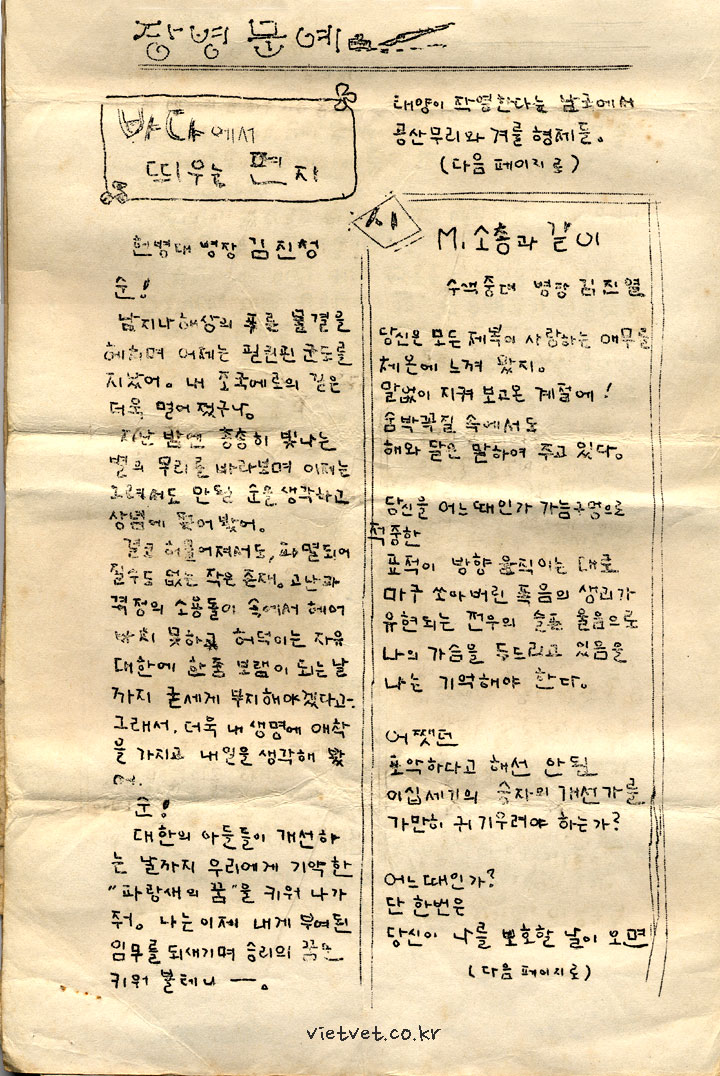 장병문예
바다에서
띄우는 편지
헌병대 병장 김진청
순!
남지나 해상의 푸른 물결을
헤치며 어제는 필린핀 군도를
지났어. 내 조국에로의 길은
더욱 멀어졌구나.
지난 밤엔 총총히 빛나는
별의 무리를 바라보며 이제는
그려서도 안될 순을 생각하고
상념에 젖어 봤어.
결코 허물어져서도, 파멸되어
질수도 없는 작은 존재. 고난과
격정의 소용돌이 속에서 헤어
나지 못하고 허덕이는 자유
대한에 한줌 보램이 되는 날
까지 굳세게 부지해야겠다고.
그래서, 더욱 내 생명에 애착
을 가지고 내일을 생각해 봤
어.
순!
대한의 아들들이 개선하
는 날까지 우리에게 기약한
"파랑새의 꿈"을 키워 나가
줘. 나는 이제 내게 부여된
임무를 되새기며 승리의 꿈만
키워 볼테니 —.
태양이 작열한다는 남국에서
공산무리와 겨룰 형제들.
(다음 페이지로)
시
M₁ 소총과 같이
수색중대 병장 김진열
당신은 모든 제복이 사랑하는 애무를
체온에 느껴 왔지.
말없이 지켜 보고온 계절에!
숨박꼭질 속에서도
해와 달은 말하여 주고 있다.
당신을 어느때인가 가늠구멍으로
적중한
표적이 방향 움직이는 대로
마구 쏘아버린 폭음의 생리가
유현되는 전우의 슬픈 울음으로
나의 가슴을 두드리고 있음을
나는 기억해야 한다.
어쨋던
포악하다고 해선 안될
이십세기의 승자의 개선가를
가만히 귀기우려야 하는가?
어느때인가?
단 한번은
당신이 나를 뽀호할 날이 오면
(다음 페이지로)
vietvet.co.kr